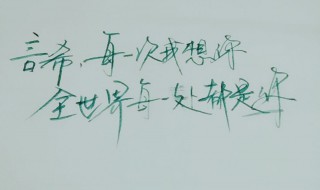 言希，每一次我想你
全世界每一处都是你